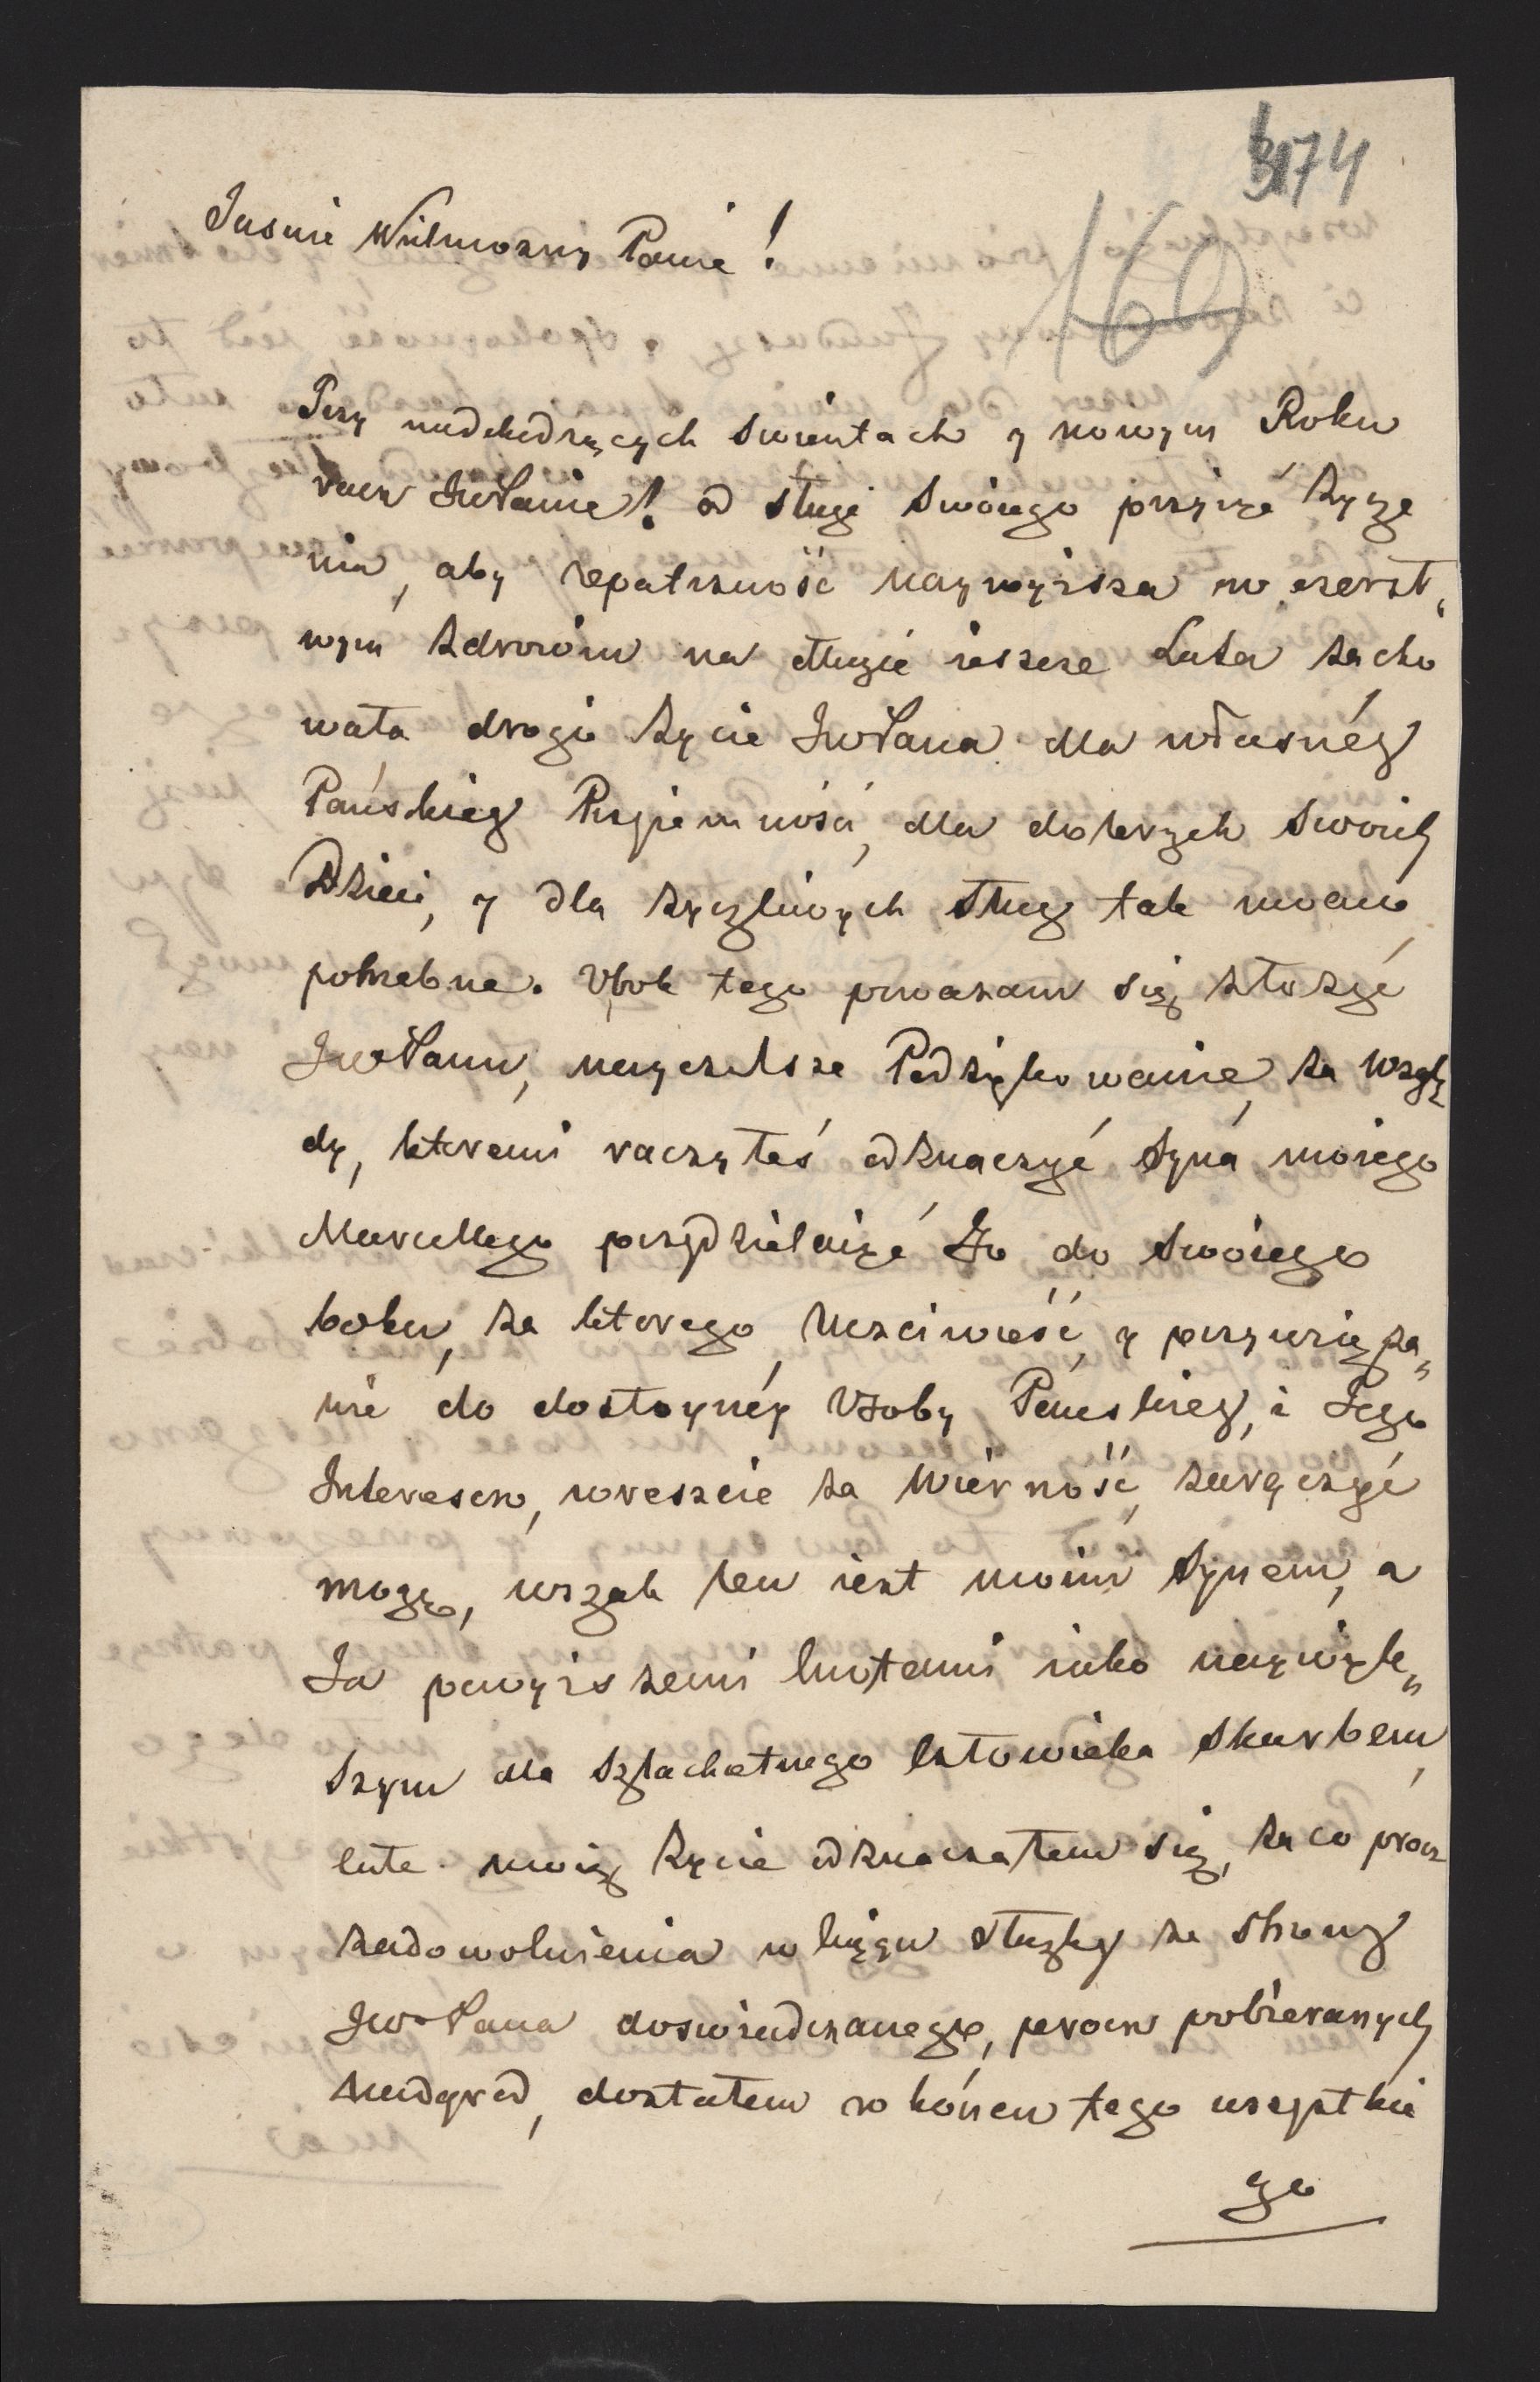 3174
160
Jasnie Wielmozny Panie!
Przy nadchodzących swientach y nowym Roku
racz JwPanie! od sługi swoiego przyiąć życze
nia, aby opatrzność naywyższa w czerst„
wym zdrowiu na długie ieszcze Lata zacho
wała drogie życie JwPana dla własnéy
Pańskiey Przyiemności, dla dobrych swoich
Dzieci, y dla życzliwych sług tak mocno
potrzebne. Obok tego powazam się złożyć
JwPanu, nayczulsze Podziękowanie, za wzglę
dy, kteremi raczyłeś odznaczyć Syna moiego
Marcellego przydzielaiąc Go do swoiego
boku, za kterego Uczciwość, y przywiąza„
nie do dostoynéy Osoby Panskiey, i Jego
Interesow, wreszcie za Wierność, zaręczyć
mogę, wszak ten iest moim Synem, a
Ja powyższemi cnotami iako naywięk„
szym dla szlachetnego człowieka skarbem,
całe moię życie odznaczałem się, za co procz
zadowolnienia w ciągu służby ze strony
JwPana doswiadczanego, procz pobieranych
nadgrod, dostałem w końcu tego wszystkie
go